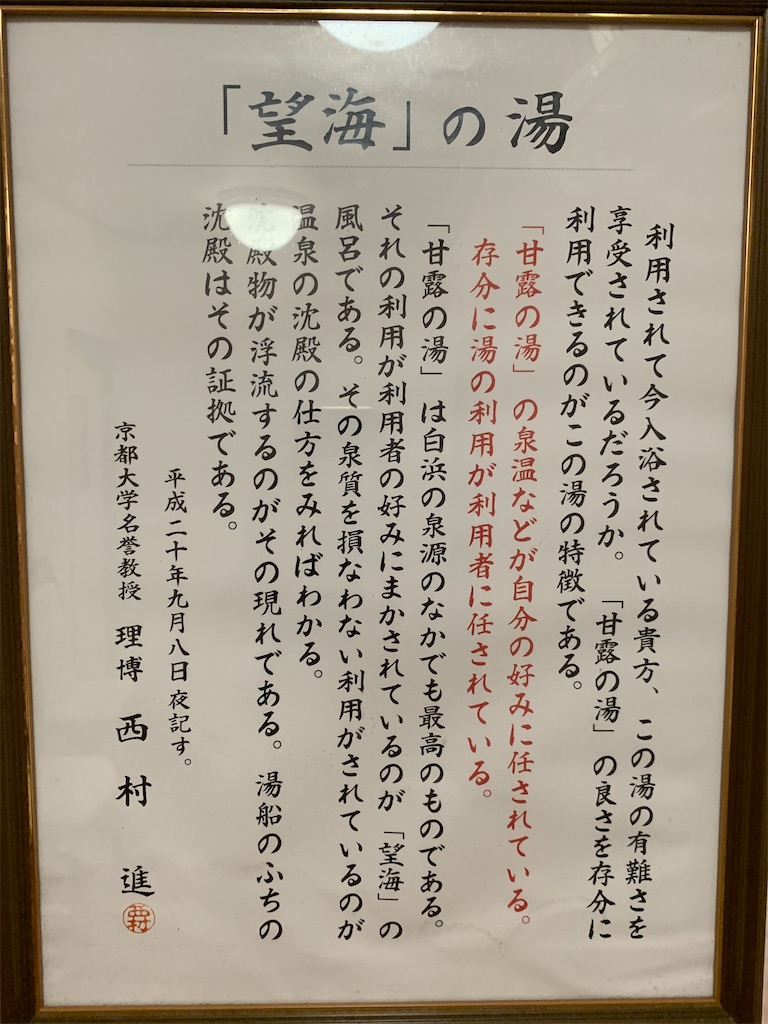 「望海」の湯
利用されて今入浴されている貴方、この湯の有難さを
享受されているだろうか。「甘露の湯」の良さを存分に
利用できるのがこの湯の特徴である。
「甘露の湯」の泉温などが自分の好みに任されている。
存分に湯の利用が利用者に任されている。
「甘露の湯」は白浜の泉源のなかでも最高のものである。
それの利用が利用者の好みにまかされているのが「望海」の
風呂である。その泉質を損なわない利用がされているのが
温泉の沈殿の仕方をみればわかる。
沈殿物が浮流するのがその現れである。湯船のふちの
沈殿はその証拠である。
平成二十年九月八日夜記す。
京都大学名誉教授 理博 西村 進
西村